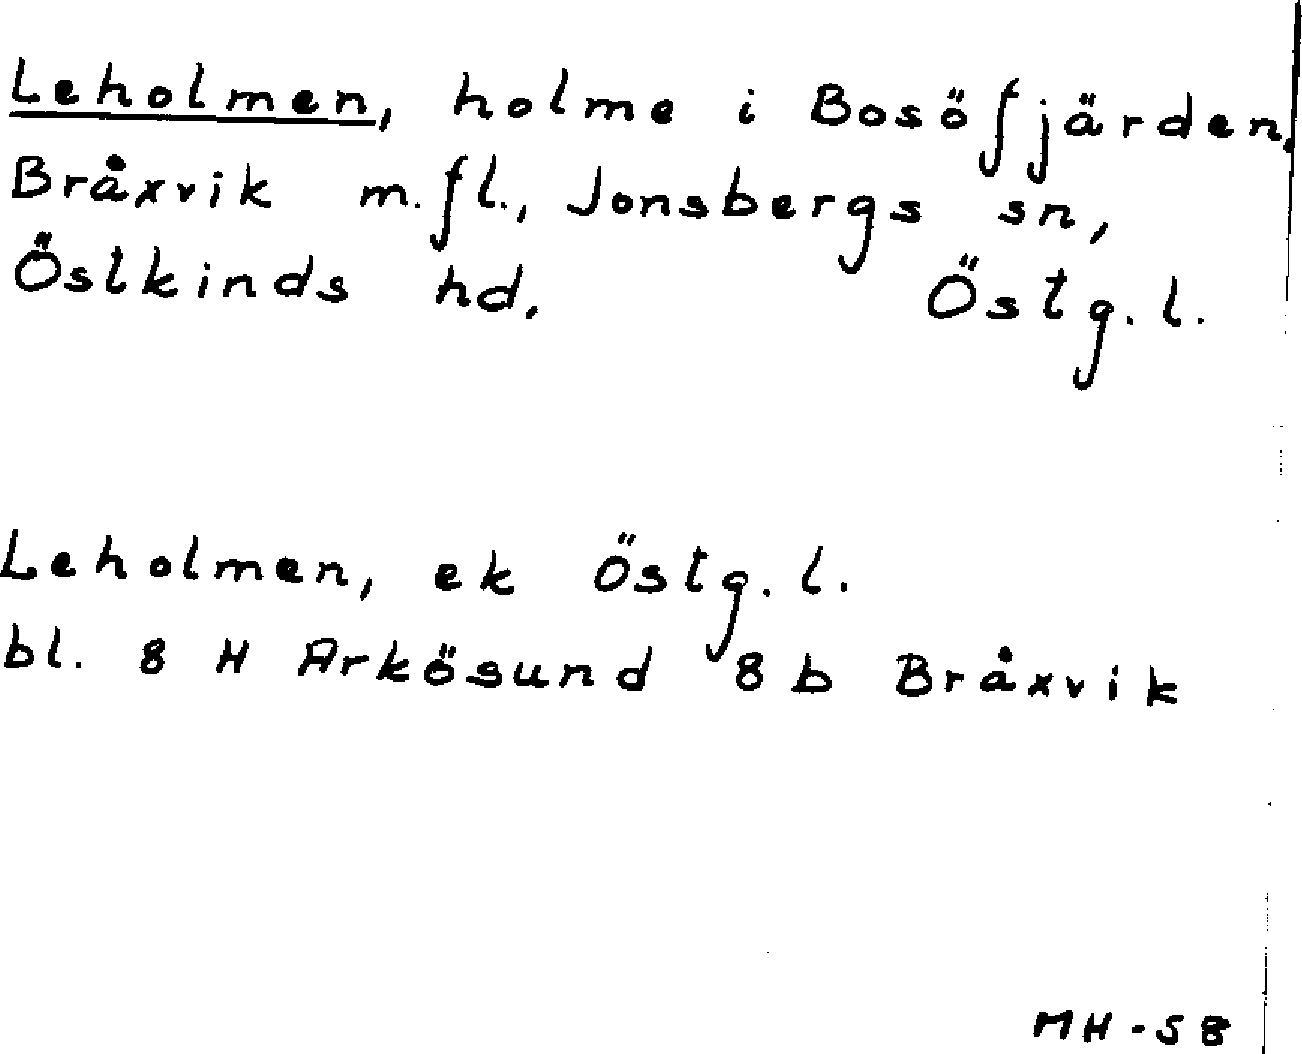 Leholmen, holme i Bosöfjärden,
Bråxvik m.fl., Jonsbergs sn,
Östkinds hd, Östg. l.
Leholmen, ek Östg. l.
bl. 8 H Arkösund 8 b Bråxvik
MH-58